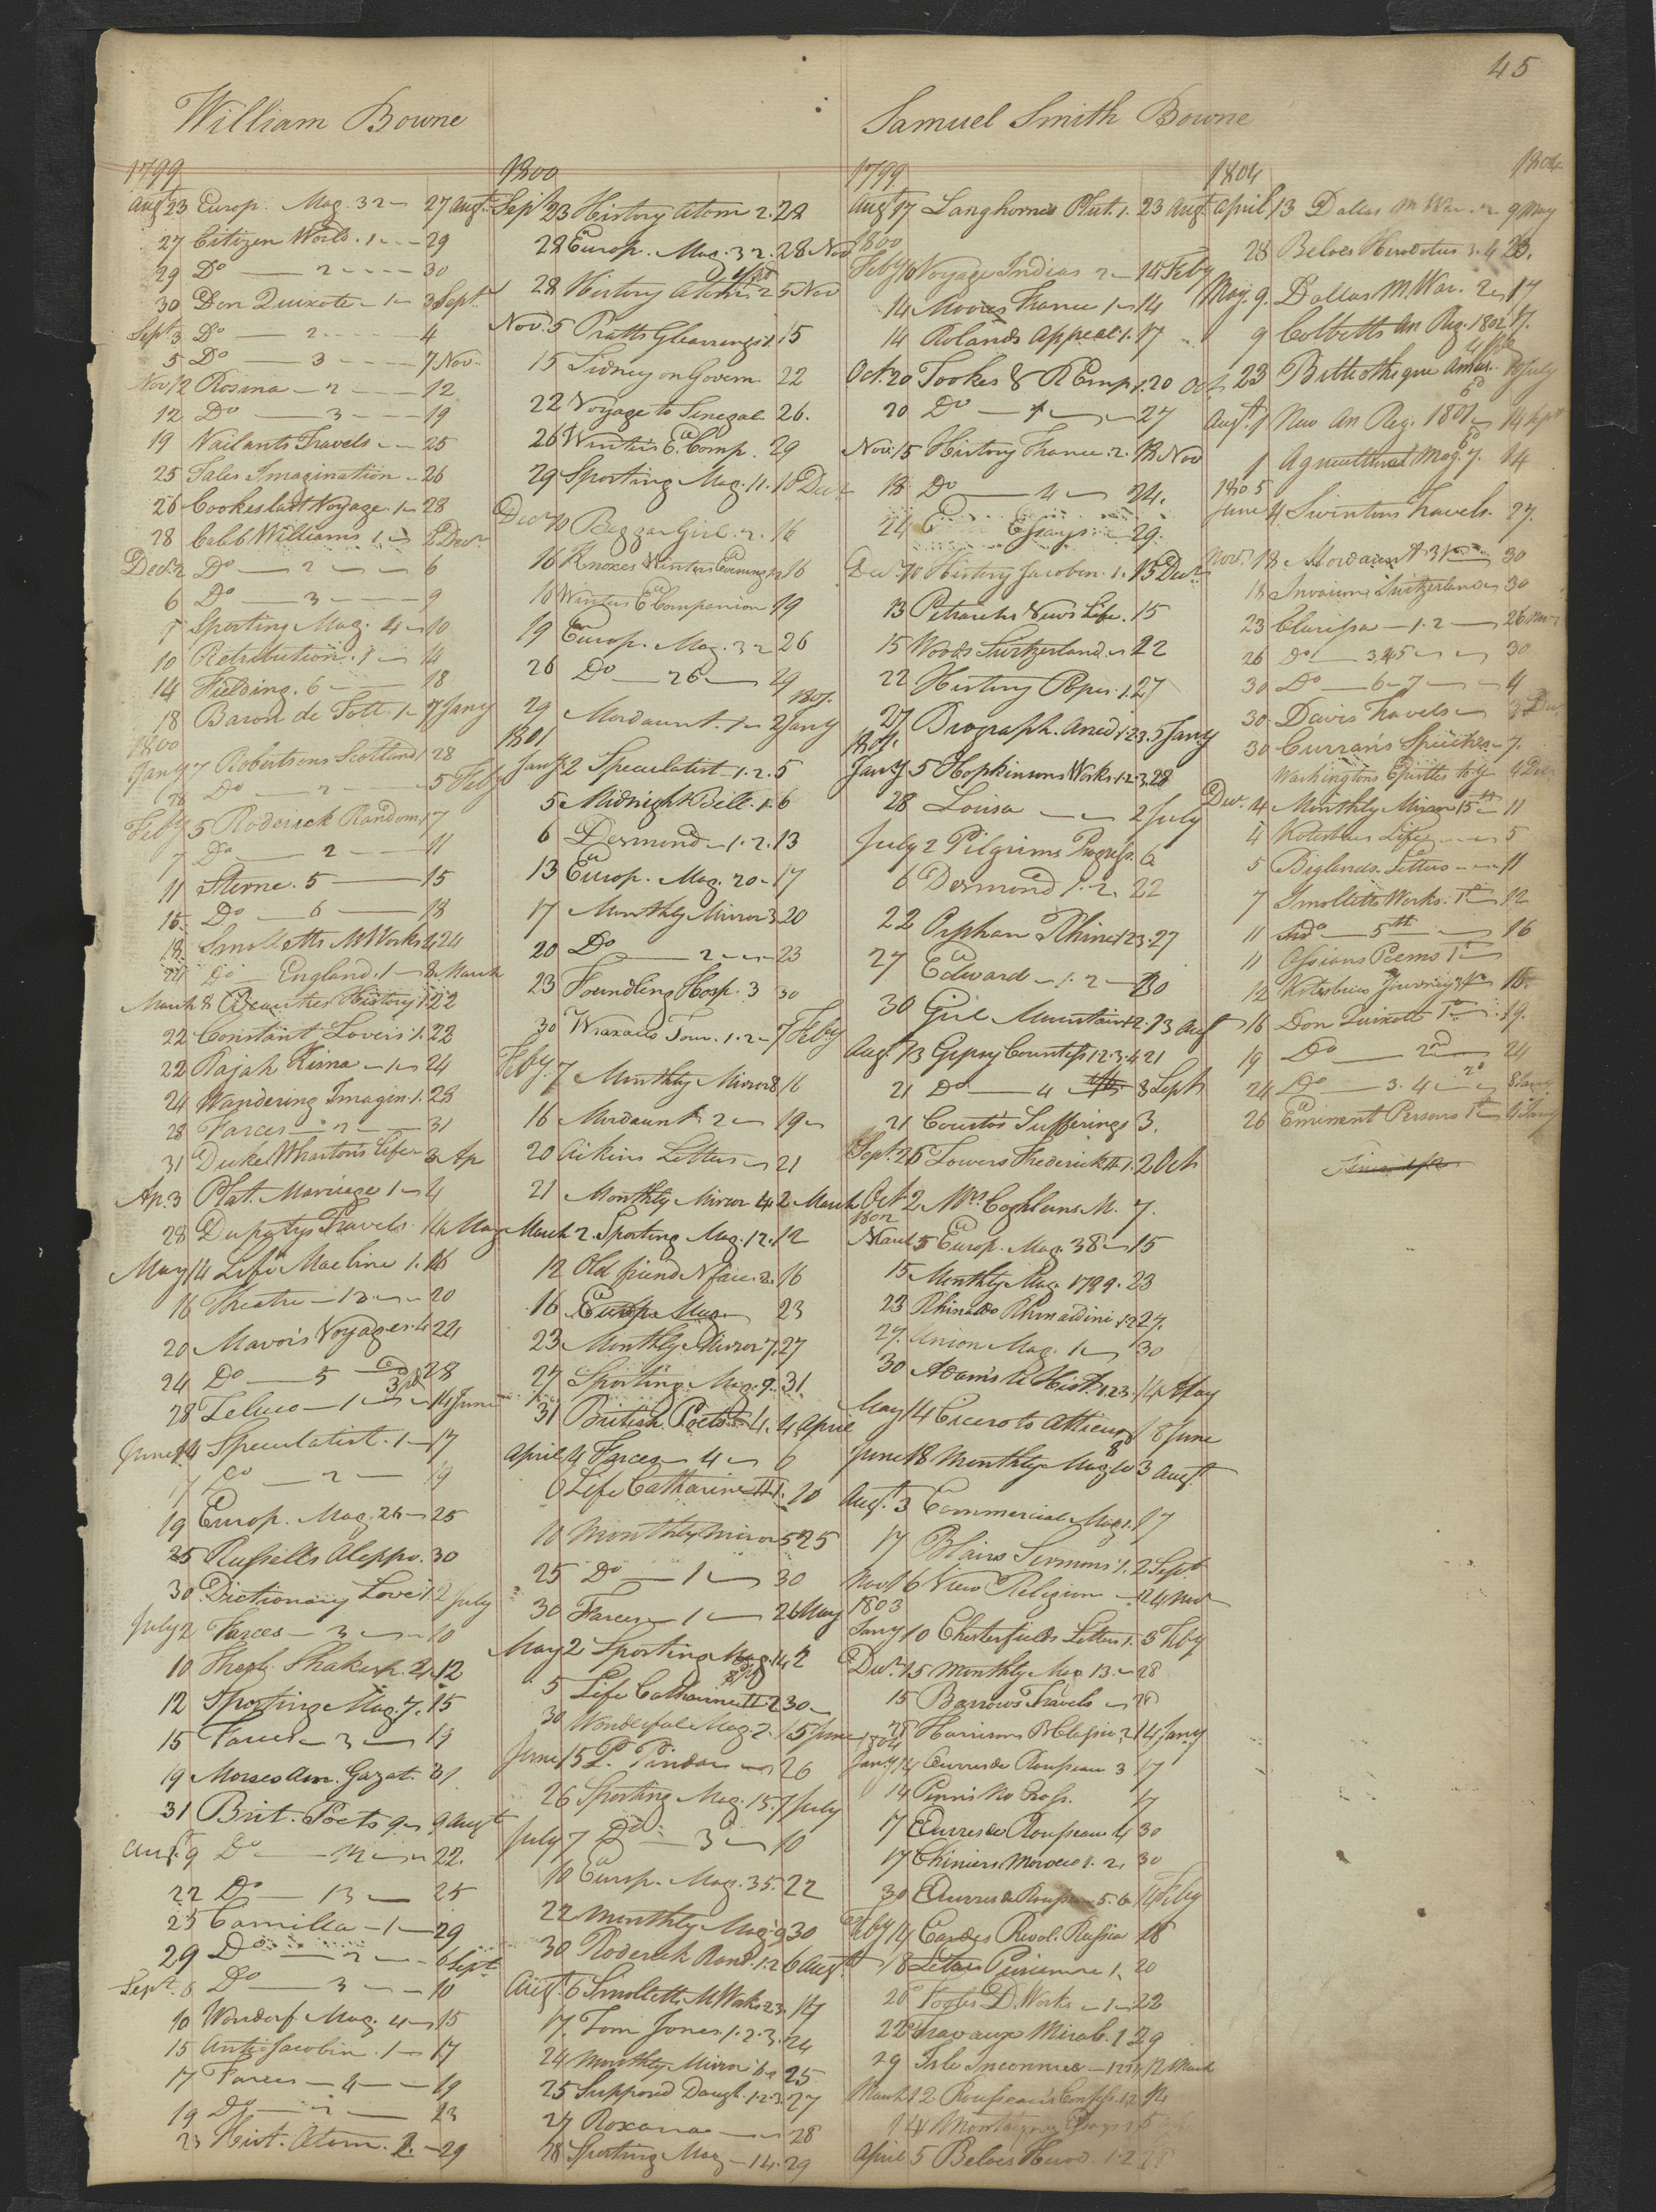 45
William Bowne
1799
Augt 23 Europ. Mag. 32 27 Augt
27 Citizen World. 1 29
29 Do 2 30
30 Don Quixote 1 3 Sept
Sept 3 Do 2 4
5 Do 3 7 Nov
Nov 12 Rosina 2 12
12 Do 3 19
19 Vailants Travels 25
25 Tales Imagination 26
26 Cookes last Voyage. 1 28
28 Caleb Williams 1 2 Decr
Decr 2 Do 2 6
6 Do 3 9
9 Sporting Mag. 4 10
10 Retribution. 1 14
14 Fielding. 6 18
18 Baron de Tott. 1 7 Jany
1800
Jany 7 Robertsons Scotland 1 28
28 Do 2 5 Feby
Feby 5 Roderick Random 1 7
7 Do 2 11
11 Sterne. 5 15
15 Do 6 18
18 Smolletts M Works 4 24
24 Do England. 1 8 March
March 8 Beauties History 1 22
22 Constant Lovers 1. 22
22 Rajah Kisna 1 24
24 Wandering Imagin. 1. 28
28 Farces 2 31
31 Duke Whartons Life 3 Ap
Ap. 3 Plat. Marriage 1 4
28 Dupatys Travels. 14 May
May 14 Life Macline 1. 16
16 Theatre 13 20
20 Mavors Voyages. 4 24
24 Do 5 28
28 Zeluco 1 14 June
June 14 Speculatist. 1 17
17 Do 2 19
19 Europ. Mag. 26 25
25 Russells Aleppo. 30
30 Dictionary Love 1 2 July
July 2 Farces 3 10
10 Theob. Shakesp. 2 12
12 Sporting Mag. 7. 15
15 Farces 3 19
19 Morses Am. Gazet. 31
31 Brit. Poets 9 9 Augt
Augt 9 Do 12 22.
22 Do 13 25
25 Camilla 1 29
29 Do 2 6 Sept
Sept. 6 Do 3 10
10 Wonderf. Mag. 4 15
15 Anti-Jacobin. 1 17
17 Farces 4 19
19 Do 2 23
23 Hist. Atom. 2. 29
1800
Sept 23 History Atom 2. 28
28 Europ. Mag. 32. 28 Nov
28 History Atom 2 5 Nov
Nov. 5 Pratts Gleanings 1. 15
15 Sidney on Govern. 22
22 Voyage to Senegal. 26.
26 Winter's E. Comp. 29
29 Sporting Mag. 11. 10 Decr
Decr 10 Beggar Girl. 2. 16
16 Knoxes Winters Evenings 1 16
16 Winters E Companion 19
19 Europ. Mag. 32 26
26 Do 26 29
29 Mordaunt. 1 2 Jany 1801.
1801
Jany 2 Speculatist 1. 2. 5
5 Midnight Bell. 1. 6
6 Desmond 1. 2. 13
13 Europ. Mag. 20 17
17 Monthly Mirror 3 20
20 Do 2 23
23 Foundling Hosp. 3 30
30 Wraxalls Tour. 1. 2 7 Feby
Feby. 7 Monthly Mirror 8 16
16 Mordaunt 2 19
20 Aikins Letters 21
21 Monthly Mirror 4 2 March
March 2. Sporting Mag. 12. 12
12 Old friend N face. 2. 16
16 Europ Mag 23
23 Monthly Mirror 7. 27
27 Sporting Mag. 9. 31
31 British Poets 4. 4 April
April 4 Farces 4 6
6 Life Catharine II 1. 10
10 Monthly Mirror 5 25
25 Do 1 30
30 Farces 1 2 May
May 2 Sporting Mag. 14 2
5 Life Catharine II 2 30
30 Wonderful Mag. 2. 15 June
June 15 P. Pindar 26
26 Sporting Mag. 15. 7 July
July 7 Do 3 10
10 Europ. Mag. 35. 22
22 Monthly Mag. 9 30
30 Roderick Rand. 1. 2 6 Augt
Augt 6 Smolletts M Works 2 3. 17
17. Tom Jones. 1. 2. 3. 24
24 Monthly Mirror 6 25
25 Supposed Daugh. 1. 2. 3 27
27 Roxana 28
28 Sporting Mag 14. 29
Samuel Smith Bowne
1799
Augt 17 Langhornes Plut. 1. 23 Augt
1800
Feby 10 Voyage Indias 2 14 Feby
14 Moores France 1 14
14 Rolands Appeal. 1. 17
Oct. 20 Tookes R Emp. 1. 20 Oct
20 Do 27
Nov. 15 History France. 2. 18 Nov
18 Do 4 24.
24 Essays 29.
Decr 10 History Jacobin. 1. 15 Decr
13 Petrarchs View's Life. 15
15 Woods Switzerland 22
22 History Popes. 1. 27
27 Biograph. Anecd 1. 2 3. 5 Jany
1801.
Jany 5 Hopkinsons Works 1. 2. 3. 28
28 Louisa 2 July
July 2 Pilgrims Progress. 6
6 Desmond 1. 2. 22
22 Orphan Rhine 1 2 3. 27
27 Edward 1. 2 30
30 Girl Mountains 1. 2. 13 Aug
Aug. 13 Gipsy Countess 1. 2. 3. 4 21
21 Do 4 3 Sept
21 Courtos Sufferings 3.
Sept. 26 Towers Frederick II 1. 2 Oct
Oct 2 Mrs Coghlans M. 7.
1802
March 5 Europ. Mag. 38 15
15 Monthly Mag. 1799. 23
23 Rhinaldo Rhinaldini 1. 2 27.
27. Union Mag. 1 30
30 Adams R Hist. 1. 2 3. 14 May
May 14 Cicero to Atticus 18 June
June 18 Monthly Mag. 10 3 Augt
Augt. 3 Commercial Mag. 1. 17
17 Blairs Sermons 1. 2 Sept
Nov 16 View Religion 24 Nov
1803
Jany 10 Chesterfields Letters 1. 5 Feby
Decr. 15 Monthly Mag 13. 28
15 Barrows Travels 28
28 Harrisons B Classics 2 14 Jany
1804
Jany 14 Œuvres de Rousseau 3 17
14 Penns No Cross. 17
17 Œuvres de Rousseau 4 30
17 Chiniers Morocco 1. 2. 30
30 Œuvres de Rousseau 5. 6. 14 Feby
Feby 14 Cardes Revol. Russia 18
18 Lettres Peruvienne 1. 20
20 Footes D. Works 1 22
22 Travaux Mirab. 1 29
29 Isle Inconnue 12 March
March 12 Rousseau's Confess. 1. 2 14
14 Montaigne Essays 1 5
April 5 Beloes Herod. 1. 2 28
1804
1804
April 13 Dallas M War. 2 9 May
28 Beloes Herodotus 3. 4 23.
May. 9. Dallas M. War. 2 17
9 Cobbetts An Reg. 1802 17.
23 Bibliotheque Amus. 10 July
Augt. 1 New An Reg. 1801 14 Sept
1 Agricultural Mag. 7. 14
1805
June 4 Swintons Travels. 27.
Novr. 18 Mordaunt 3 30
18 Invasion Switzerland 30
23 Clarissa 1. 2 26 Nov
26 Do 3. 4. 5 30
30 Do 6 7 4
30 Davis Travels 3 Dec
30 Curran's Speeches 7.
Washingtons Epistles 4 Dec
Decr. 4 Monthly Mirror 15th 11
4 Kotzebues Life 5
5 Biglands Letters 11
7 Smolletts Works. 1st 12
11 Do 5th 16
11 Ossians Poems 1st
12 Kotzebues Journey 16.
16 Don Quixott 1st 19.
19 Do 2nd 24
24 Do 3. 4 8 Jany
26 Eminent Persons 1st 4 Jany